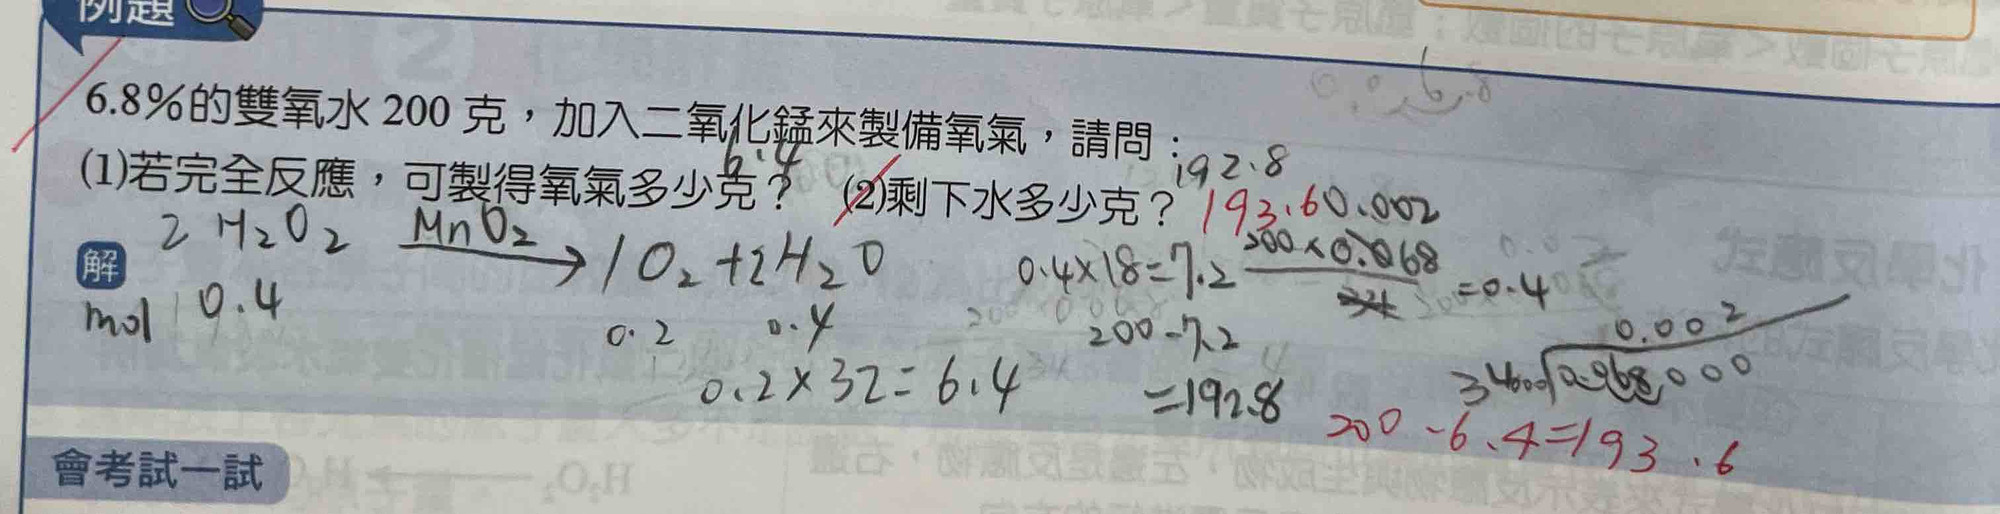 例題
6.8%的雙氧水 200 克，加入二氧化錳來製備氧氣，請問：
(1)若完全反應，可製得氧氣多少克？ (2)剩下水多少克？
6.4
192.8
193.6
0.002
解
2 H₂O₂ MnO₂ → 1 O₂ + 2 H₂O
mol 0.4
0.2 0.4
0.2×32=6.4
0.4×18=7.2
200-7.2
=192.8
200×0.068
34
=0.4
0.002
200-6.4=193.6
會考試一試